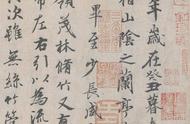 年歲在癸丑暮
山陰之蘭亭
畢至少長咸
領茂林脩竹又有
帶左右引以為流
次雖無絲竹管